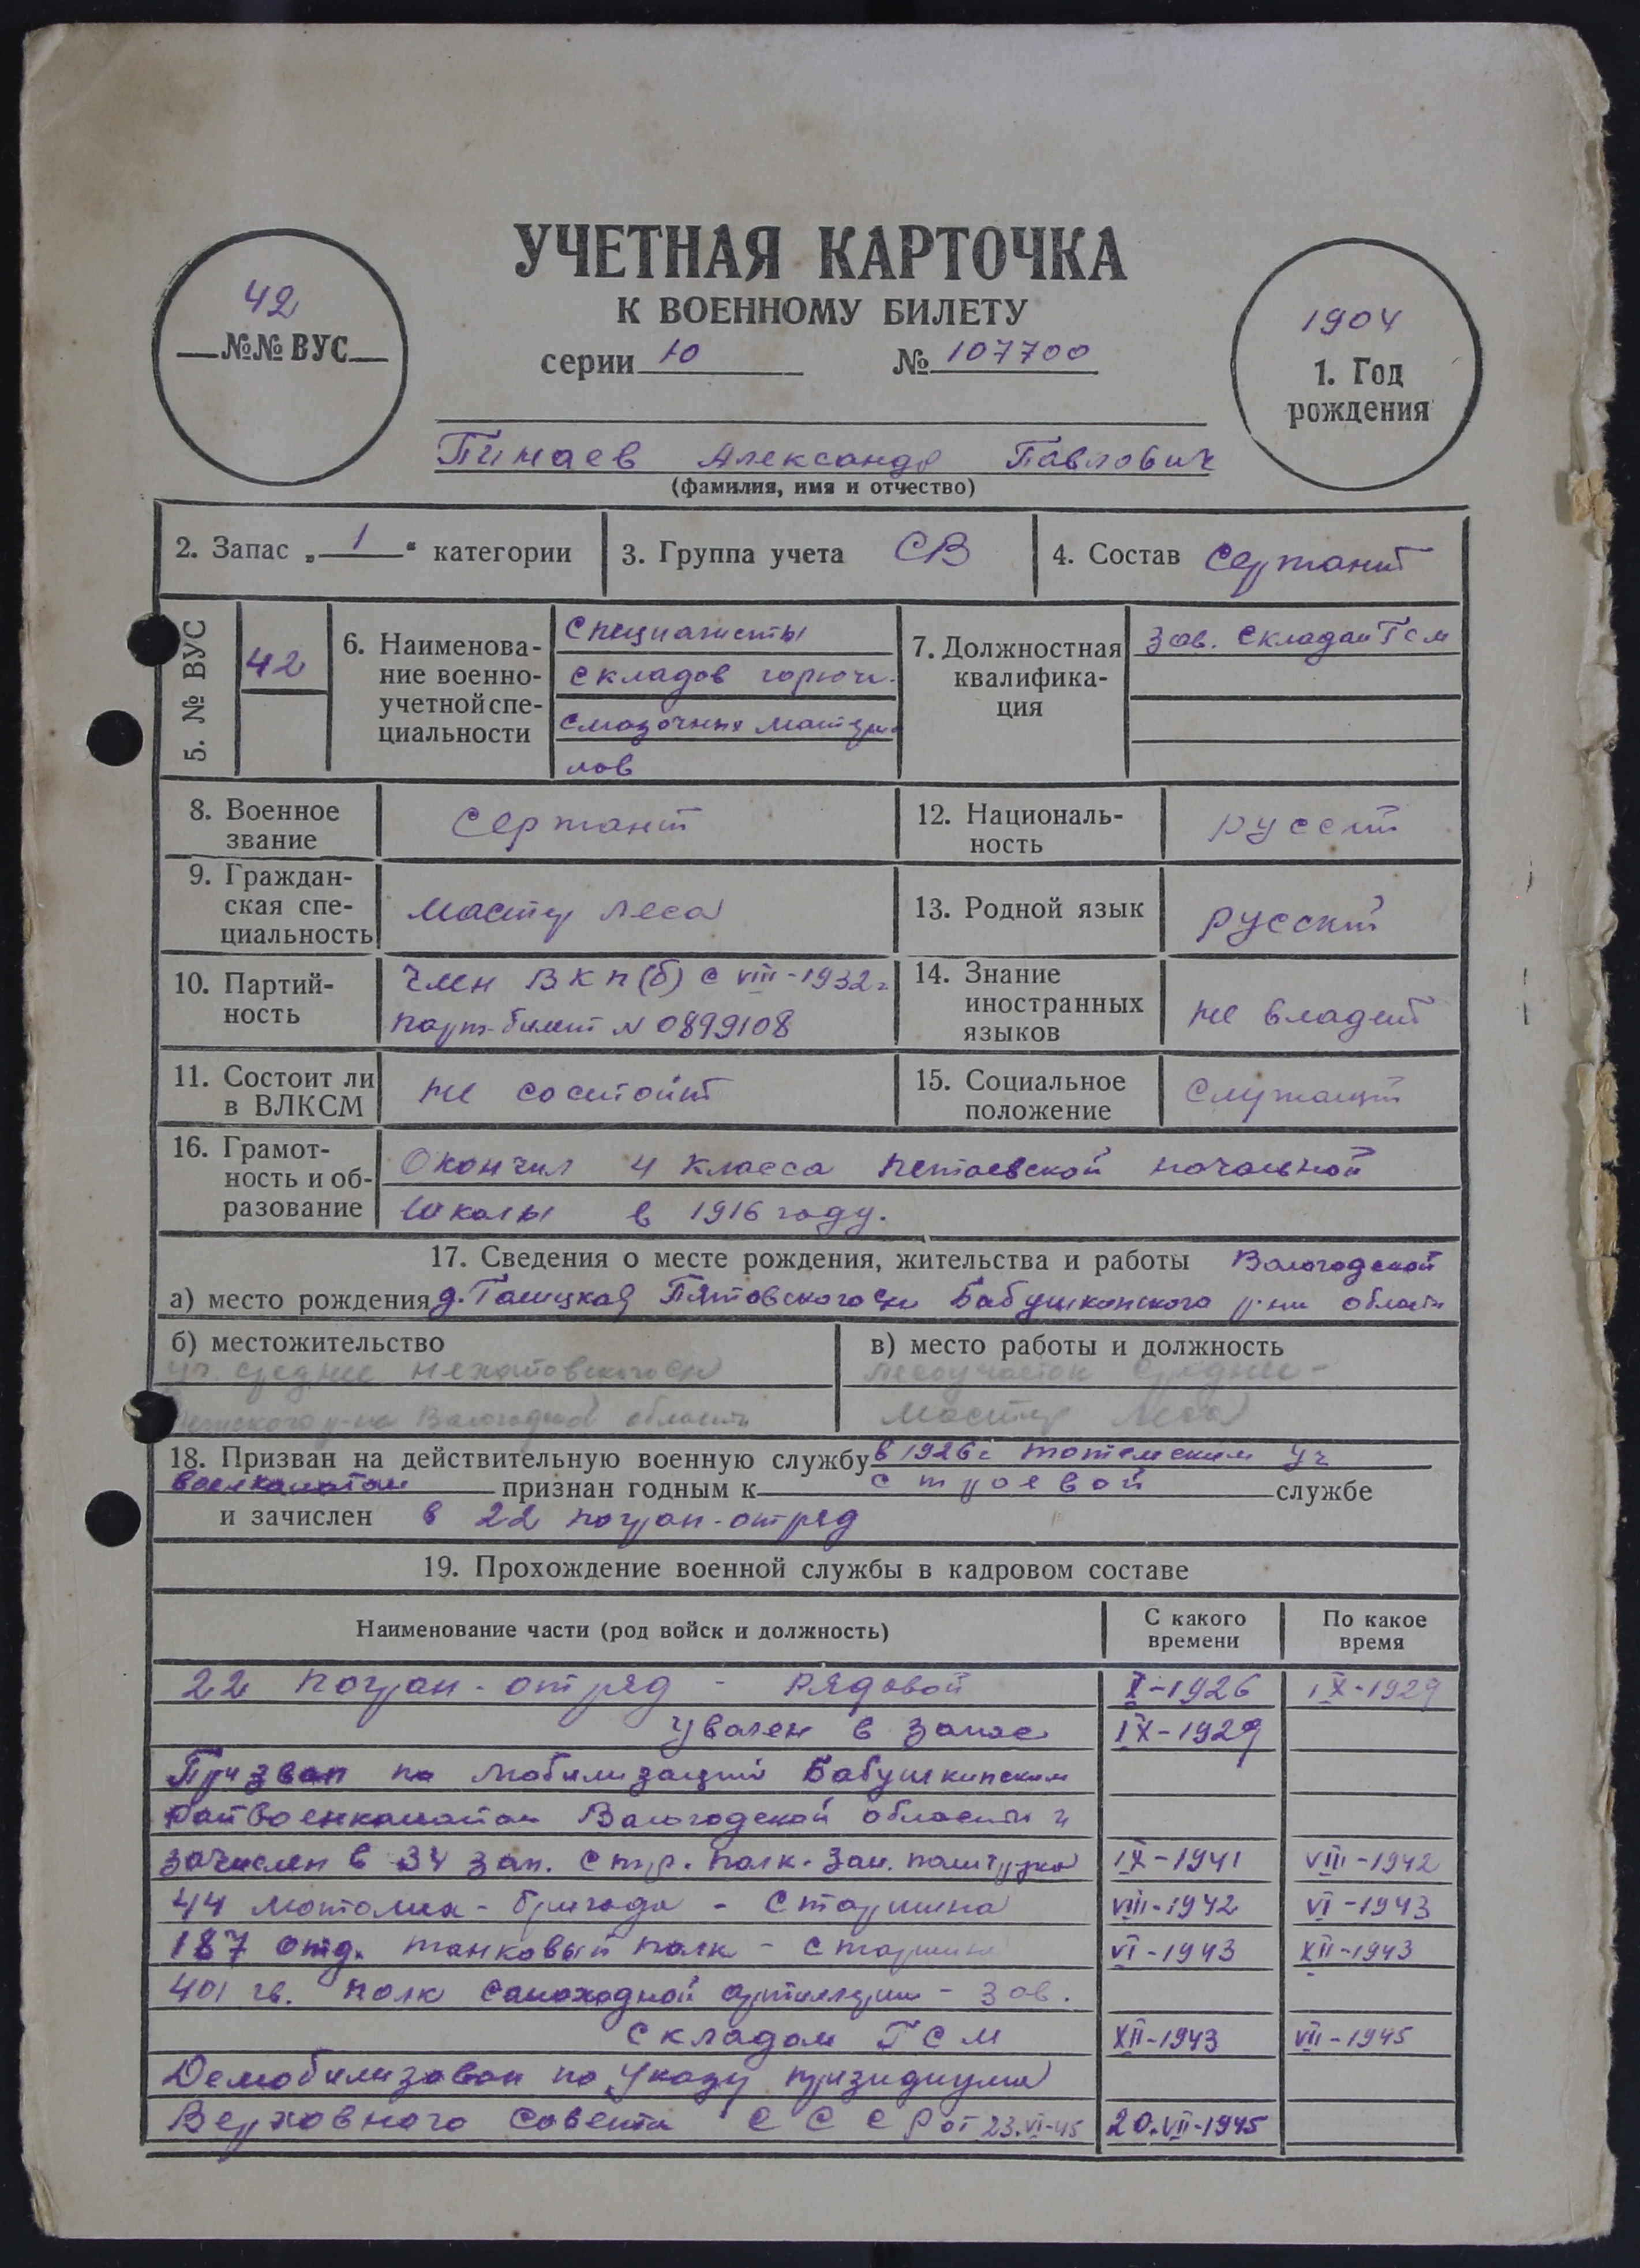 УЧЕТНАЯ КАРТОЧКА
К ВОЕННОМУ БИЛЕТУ
серии 10 № 107700
42
№№ ВУС
1904
1. Год
рождения
Пинаев Александр Павлович
(фамилия, имя и отчество)
2. Запас „ 1 “ категории
3. Группа учета СВ
4. Состав Сержант
5. № ВУС
42
6. Наименова-
ние военно-
учетной спе-
циальности
Специалисты
складов горюч.
смазочных материа
лов
7. Должностная
квалифика-
ция
Зав. складам ГСМ
8. Военное
звание
Сержант
12. Националь-
ность
русский
9. Граждан-
ская спе-
циальность
Мастер леса
13. Родной язык
русский
10. Партий-
ность
Член ВКП(б) с VIII-1932г
парт-билет N 0899108
14. Знание
иностранных
языков
не владеет
11. Состоит ли
в ВЛКСМ
не состоит
15. Социальное
положение
Служащий
16. Грамот-
ность и об-
разование
Окончил 4 класса начальной
школы в 1916 году.
17. Сведения о месте рождения, жительства и работы Вологодской
а) место рождения д. Галицкая Пятовского с/с Бабушкинского р-на области
б) местожительство
уч. среднее с/с
р-на Вологодской области
в) место работы и должность
лесоучасток Среднее-
Мастер леса
18. Призван на действительную военную службу в 1926г Тотемским уч
военкоматом признан годным к строевой службе
и зачислен в 22 погран-отряд
19. Прохождение военной службы в кадровом составе
Наименование части (род войск и должность)
С какого
времени
По какое
время
22 погран-отряд - рядовой X-1926 IX-1929
Уволен в запас IX-1929
Призван по мобилизации Бабушкинским
райвоенкоматом Вологодской области и
зачислен в 34 зап. стр. полк. зам. политрука IX-1941 VIII-1942
44 мотомех-бригада - Старшина VIII-1942 VI-1943
187 отд. танковый полк - старшина VI-1943 XII-1943
401 гв. полк самоходной артиллерии - зав.
складом ГСМ XII-1943 VII-1945
Демобилизован по Указу президиума
Верховного Совета СССР от 23.VI-45 20.VII-1945